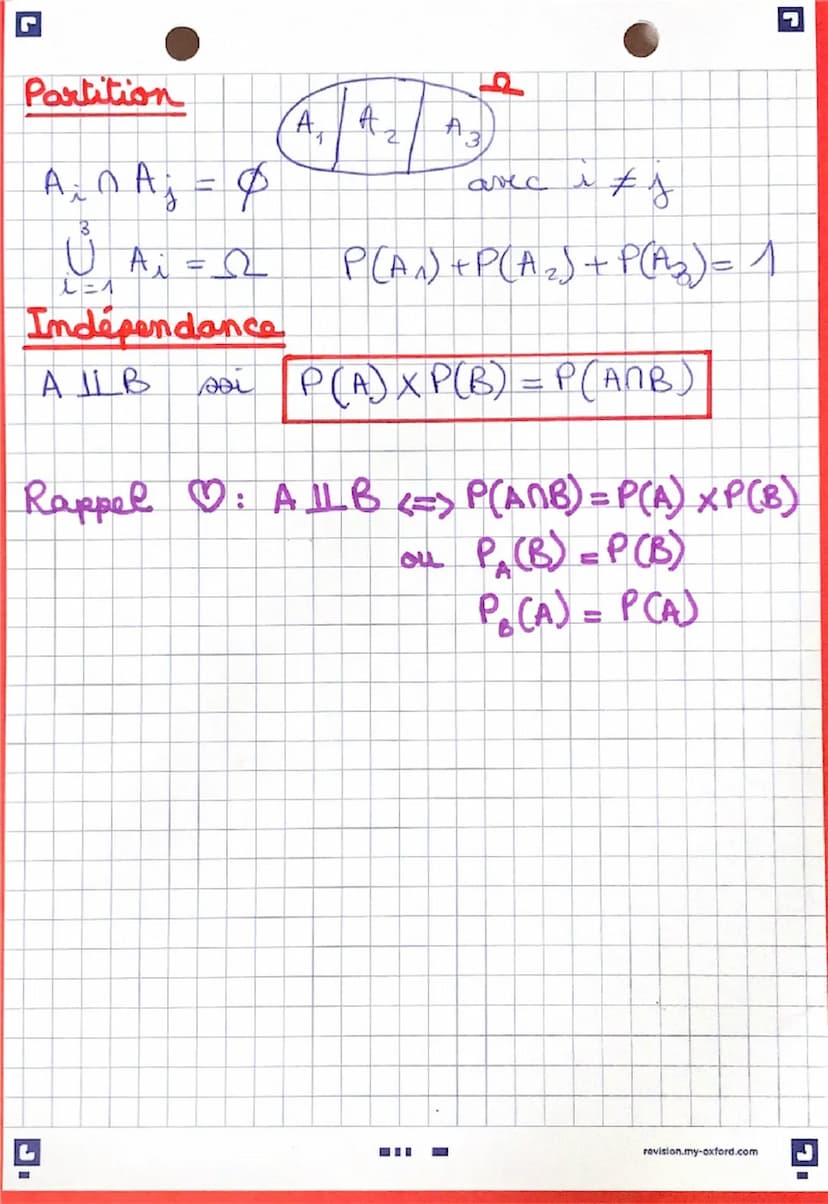 Partition
A₁ A₂ A₃ Ω
Aᵢ ∩ Aⱼ = ∅ avec i ≠ j
3
∪ Aᵢ = Ω P(A₁) + P(A₂) + P(A₃) = 1
i=1
Indépendance
A ⫫ B ssi P(A) × P(B) = P(A∩B)
Rappel ♡ : A ⫫ B <=> P(A∩B) = P(A) × P(B)
ou P_A(B) = P(B)
P_B(A) = P(A)
revision.my-oxford.com